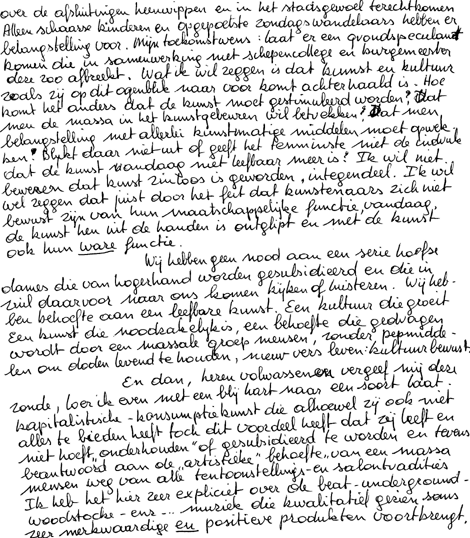 over de afsluitingen heenwippen en in het stadsgewoel terechtkomen
Alleen schaarse kinderen en opgepoetste zondagswandelaars hebben er
belangstelling voor. Mijn toekomstwens: laat er een grondspeculant
komen die in samenwerking met schepencollege en burgemeester
deze zoo afbreekt. Wat ik wil zeggen is dat kunst en kultuur
zoals zij op dit ogenblik naar voor komt achterhaald is. Hoe
komt het anders dat de kunst moet gestimuleerd worden? Dat
men de massa in het kunstgebeuren wil betrekken? Dat men
belangstelling met allerlei kunstmatige middelen moet opwek-
ken? Blijkt daar niet uit of geeft het tenminste niet de indruk
dat de kunst vandaag niet leefbaar meer is? Ik wil niet
beweren dat kunst zinloos is geworden, integendeel. Ik wil
wel zeggen dat juist door het feit dat kunstenaars zich niet
bewust zijn van hun maatschappelijke functie, vandaag,
de kunst hen uit de handen is ontglipt en met de kunst
ook hun ware functie.
Wij hebben geen nood aan een serie hoofse
dames die van hogerhand worden gesubsidieerd en die in
ruil daarvoor naar ons komen kijken of luisteren. Wij heb-
ben behoefte aan een leefbare kunst. Een kultuur die groeit
Een kunst die noodzakelijk is, een behoefte die gedragen
wordt door een massale groep mensen, zonder pepmidde-
len om doden levend te houden, nieuw vers leven: kultuurbewust.
En dan, heren volwassenen vergeef mij deze
zonde, loer ik even met een blij hart naar een soort laat-
kapitalistische-konsumptiekunst die alhoewel zij ook niet
alles te bieden heeft toch dit voordeel heeft dat zij leeft en
niet hoeft "onderhouden" of gesubsidieerd te worden en tevens
beantwoord aan de "artistieke" behoefte van een massa
mensen weg van alle tentoonstellings- en salontradities
Ik heb het hier zeer expliciet over de beat-underground-
woodstocke-ens... muziek die kwalitatief gezien soms
zeer merkwaardige en positieve produkten voortbrengt.